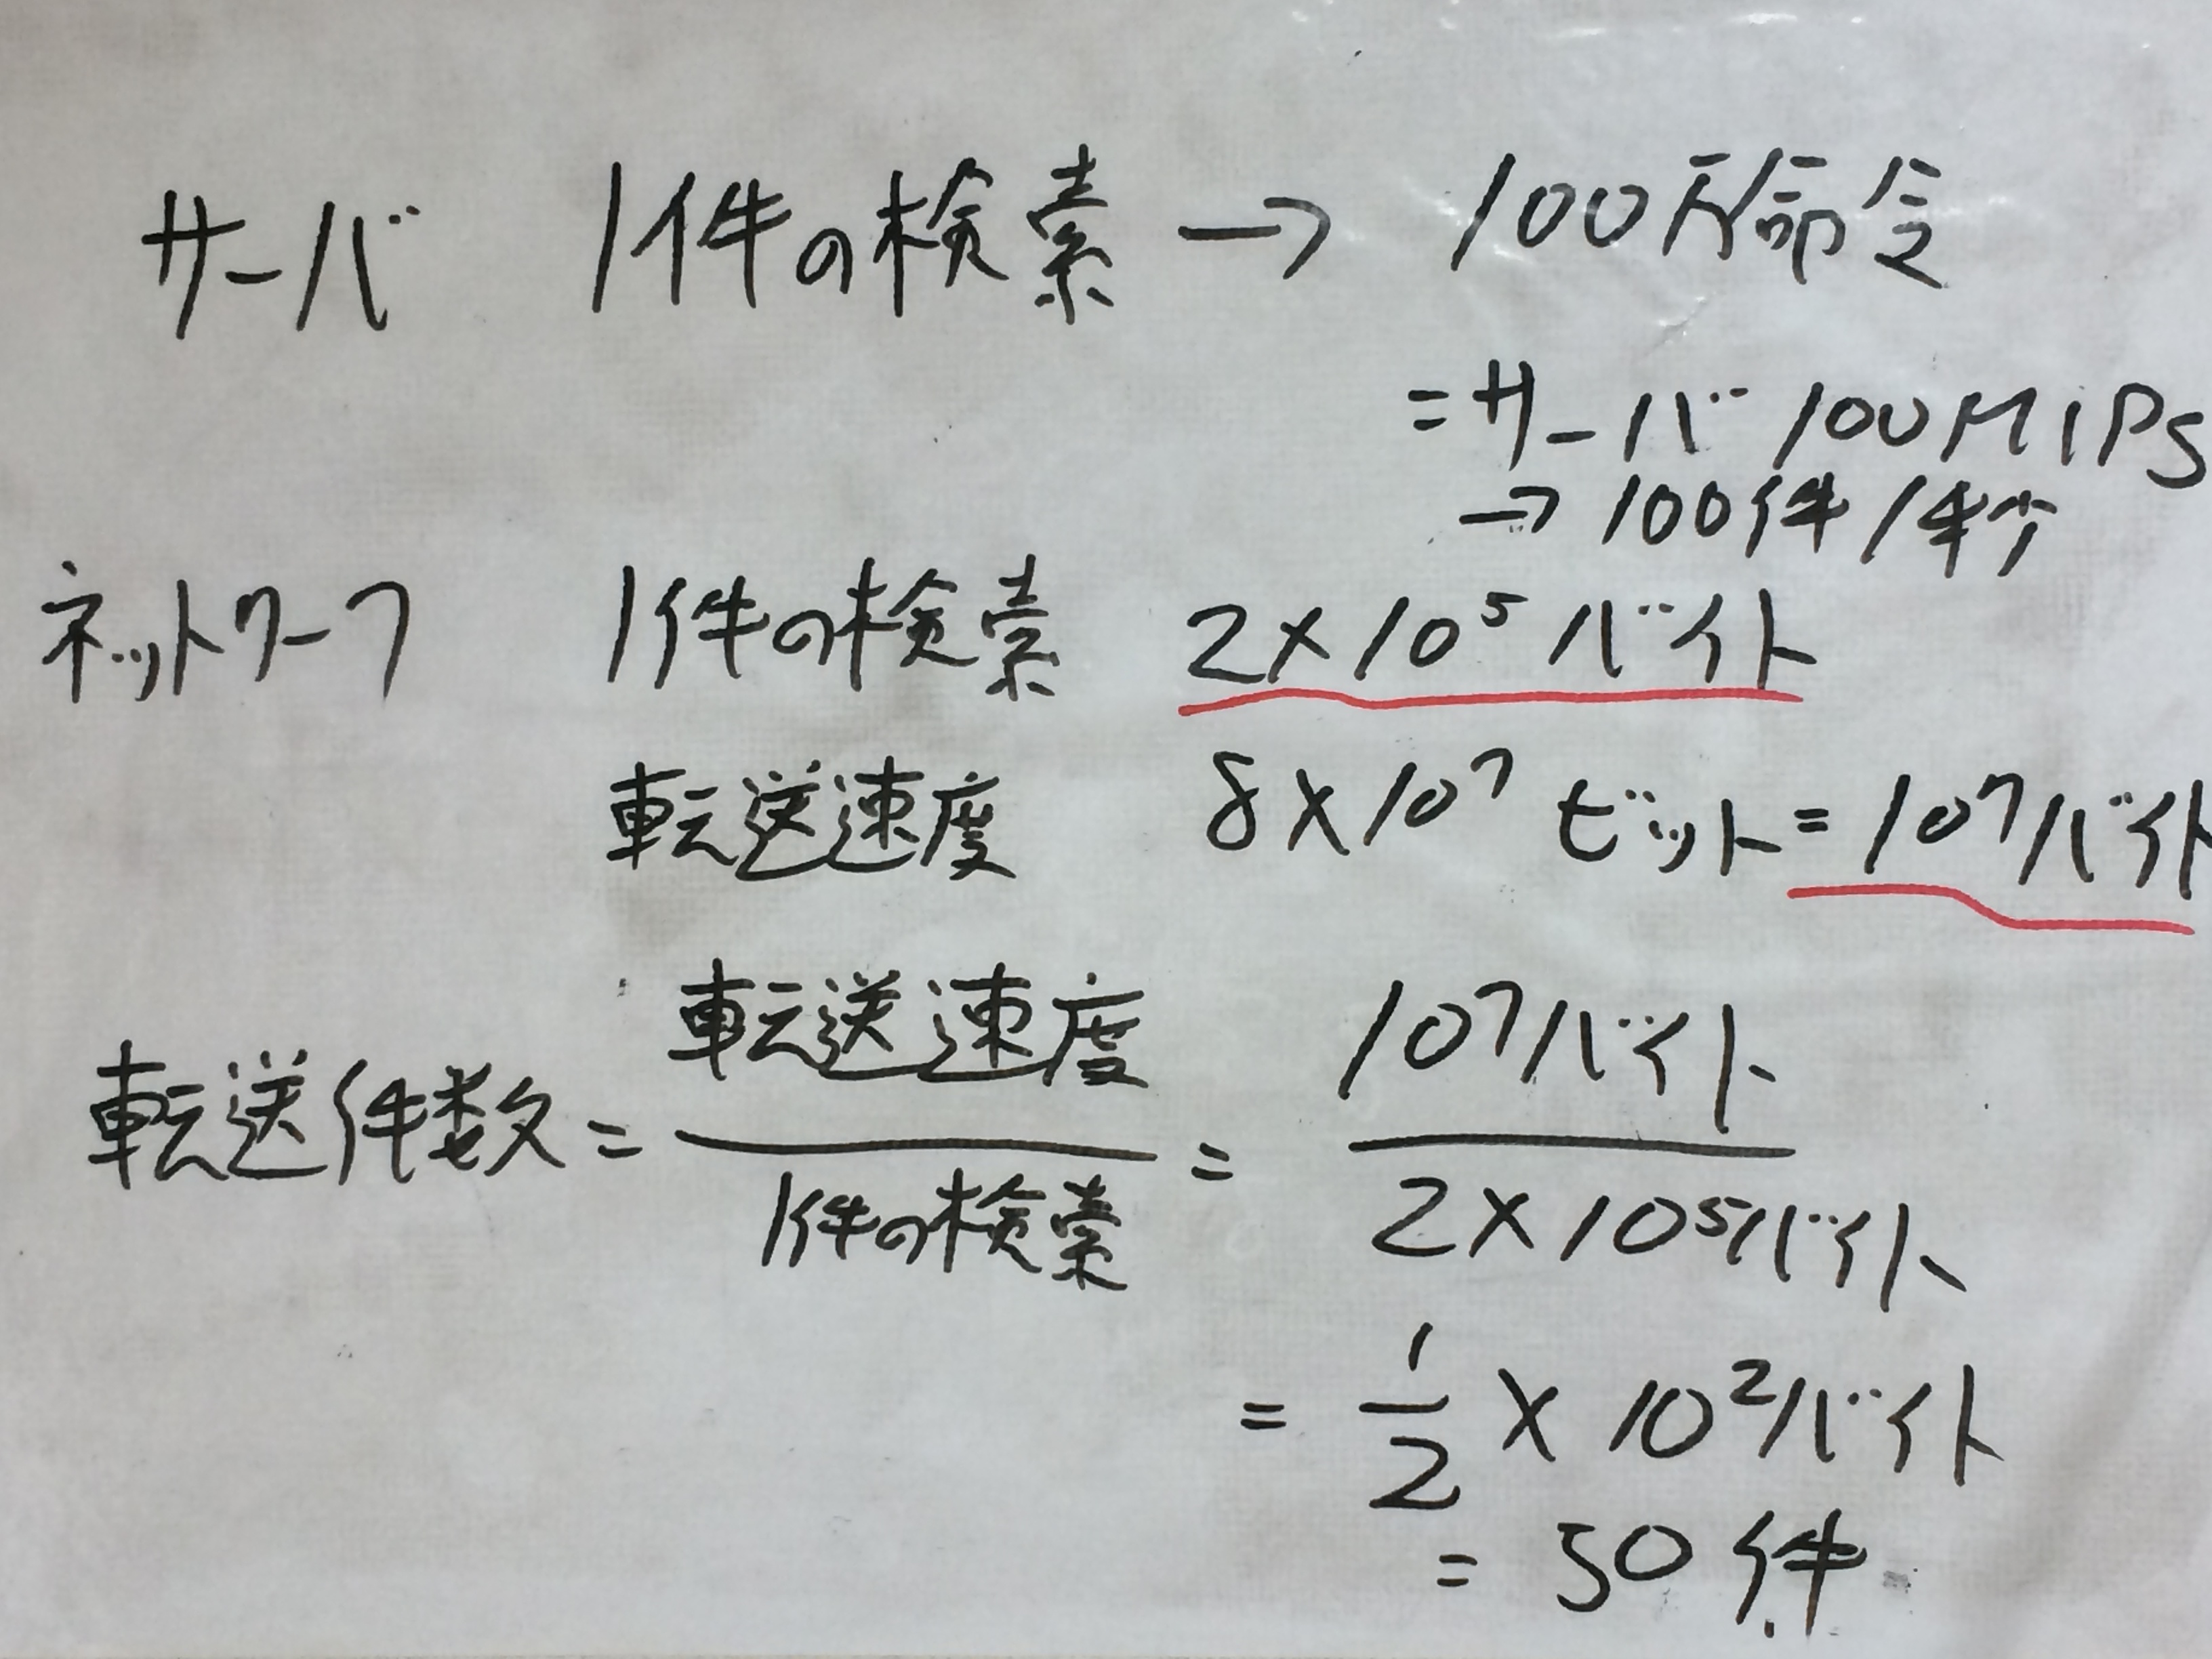 サーバ 1件の検索 → 100万命令
=サーバ 100MIPS
→ 100件/秒
ネットワーク 1件の検索 2×10⁵バイト
転送速度 8×10⁷ビット=10⁷バイト
転送件数 = 転送速度/1件の検索 = 10⁷バイト/2×10⁵バイト
= 1/2 × 10²バイト
= 50件